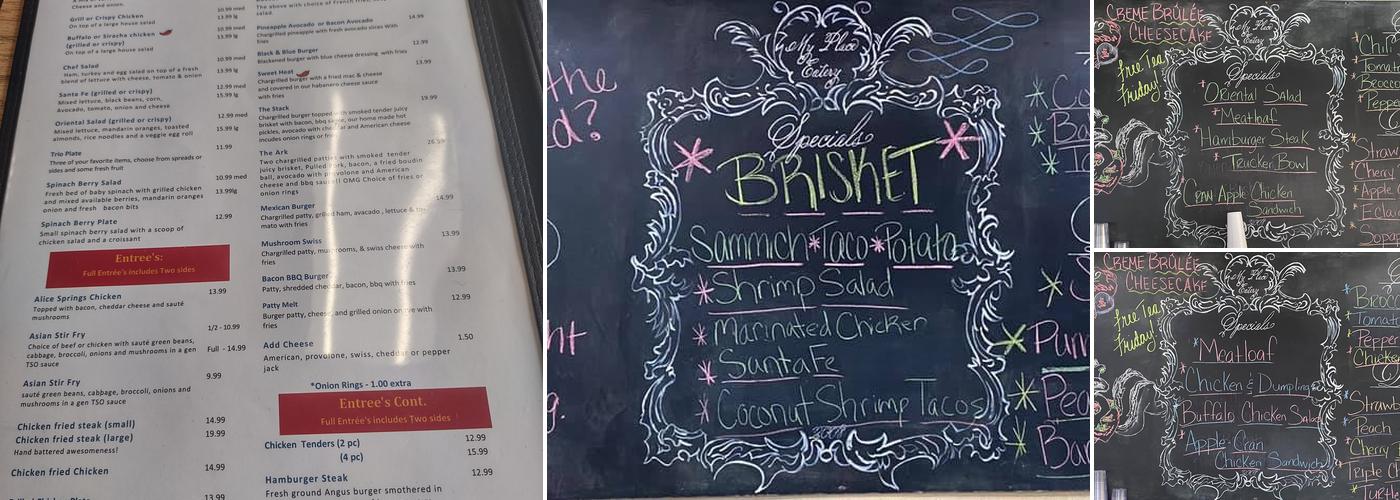 Cheese and onion.
Grill or Crispy Chicken
10.99 med
On top of a large house salad
13.99 lg
Buffalo or Siracha chicken
10.99 med
(grilled or crispy)
13.99 lg
On top of a large house salad
Chef Salad
10.99 med
Ham, turkey and egg salad on top of a fresh
13.99 lg
blend of lettuce with cheese, tomato & onion
Santa Fe (grilled or crispy)
12.99 med
Mixed lettuce, black beans, corn,
15.99 lg
Avocado, tomato, onion and cheese
Oriental Salad (grilled or crispy)
12.99 med
Mixed lettuce, mandarin oranges, toasted
15.99 lg
almonds, rice noodles and a veggie egg roll
Trio Plate
11.99
Three of your favorite items, choose from spreads or
sides and some fresh fruit
Spinach Berry Salad
10.99 med
Fresh bed of baby spinach with grilled chicken
13.99lg
and mixed available berries, mandarin oranges
onion and fresh bacon bits
Spinach Berry Plate
12.99
Small spinach berry salad with a scoop of
chicken salad and a croissant
Entree's:
Full Entrée's includes Two sides
Alice Springs Chicken
13.99
Topped with bacon, cheddar cheese and sauté
mushrooms
Asian Stir Fry
1/2 - 10.99
Choice of beef or chicken with sauté green beans,
cabbage, broccoli, onions and mushrooms in a gen
Full - 14.99
TSO sauce
Asian Stir Fry
9.99
sauté green beans, cabbage, broccoli, onions and
mushrooms in a gen TSO sauce
Chicken fried steak (small)
14.99
Chicken fried steak (large)
19.99
Hand battered awesomeness!
Chicken fried Chicken
14.99
13.99
The above with choice of French fries,
salad.
Pineapple Avocado or Bacon Avocado
14.99
Chargrilled pineapple with fresh avocado slices With
fries
Black & Blue Burger
12.99
Blackened burger with blue cheese dressing with fries
Sweet Heat
13.99
Chargrilled burger with a fried mac & cheese
and covered in our habanero cheese sauce
with fries
The Stack
19.99
Chargrilled burger topped with smoked tender juicy
brisket with bacon, bbq sauce, our home made hot
pickles, avocado with cheddar and American cheese
incudes onion rings or fries
The Ark
26.99
Two chargrilled patties with smoked tender
juicy brisket, Pulled Pork, bacon, a fried boudin
ball, avocado with provolone and American
cheese and bbq sauce!! OMG Choice of fries or
onion rings
Mexican Burger
14.99
Chargrilled patty, grilled ham, avocado , lettuce & to-
mato with fries
Mushroom Swiss
13.99
Chargrilled patty, mushrooms, & swiss cheese with
fries
Bacon BBQ Burger
13.99
Patty, shredded cheddar, bacon, bbq with fries
Patty Melt
12.99
Burger patty, cheese, and grilled onion on rye with
fries
Add Cheese
1.50
American, provolone, swiss, cheddar or pepper
jack
*Onion Rings - 1.00 extra
Entree's Cont.
Full Entrée's includes Two sides
Chicken Tenders (2 pc)
12.99
(4 pc)
15.99
Hamburger Steak
12.99
Fresh ground Angus burger smothered in
the
d?
My Place
Eatery
Specials
BRISKET
Sammich*Taco*Potato
*Shrimp Salad
*Marinated Chicken
*SantaFe
*Coconut Shrimp Tacos
CREME BRÛLÉE
CHEESECAKE
Free Tea
Friday!
My Place
Eatery
Specials
Oriental Salad
*Meatloaf
Hamburger Steak
*Trucker Bowl
Cran Apple Chicken
Sandwich
CREME BRÛLÉE
CHEESECAKE
Free Tea
Friday!
My Place
Eatery
Specials
*Meatloaf
Chicken & Dumplings
Buffalo Chicken Salad
Apple-Cran
Chicken Sandwich
Peach